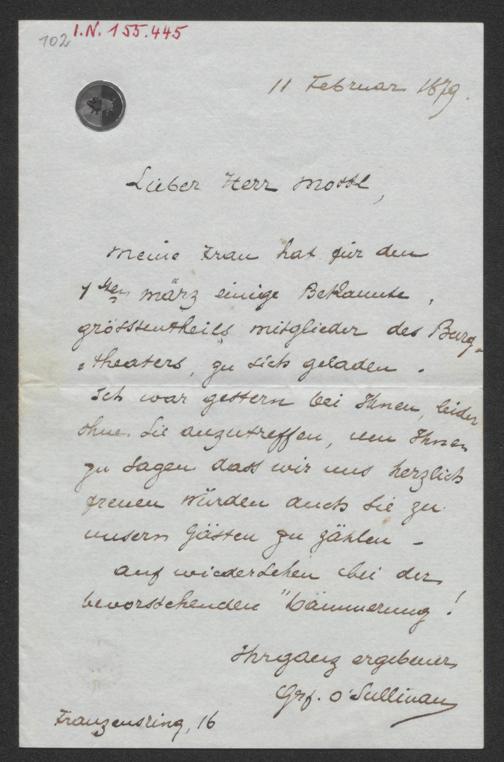 102
I.N. 155.445
11 Februar 1879.
Lieber Herr Mottl,
Meine Frau hat für den
1ten März einige Bekannte,
grösstentheils Mitglieder des Burg-
-theaters, zu sich geladen.
Ich war gestern bei Ihnen, leider
ohne Sie anzutreffen, um Ihnen
zu sagen dass wir uns herzlich
freuen würden auch Sie zu
unsern Gästen zu zählen -
Auf wiedersehen bei der
bevorstehenden "Dämmerung!
Ihr ganz ergebener
Grf. O'Sullivan
Franzensring, 16